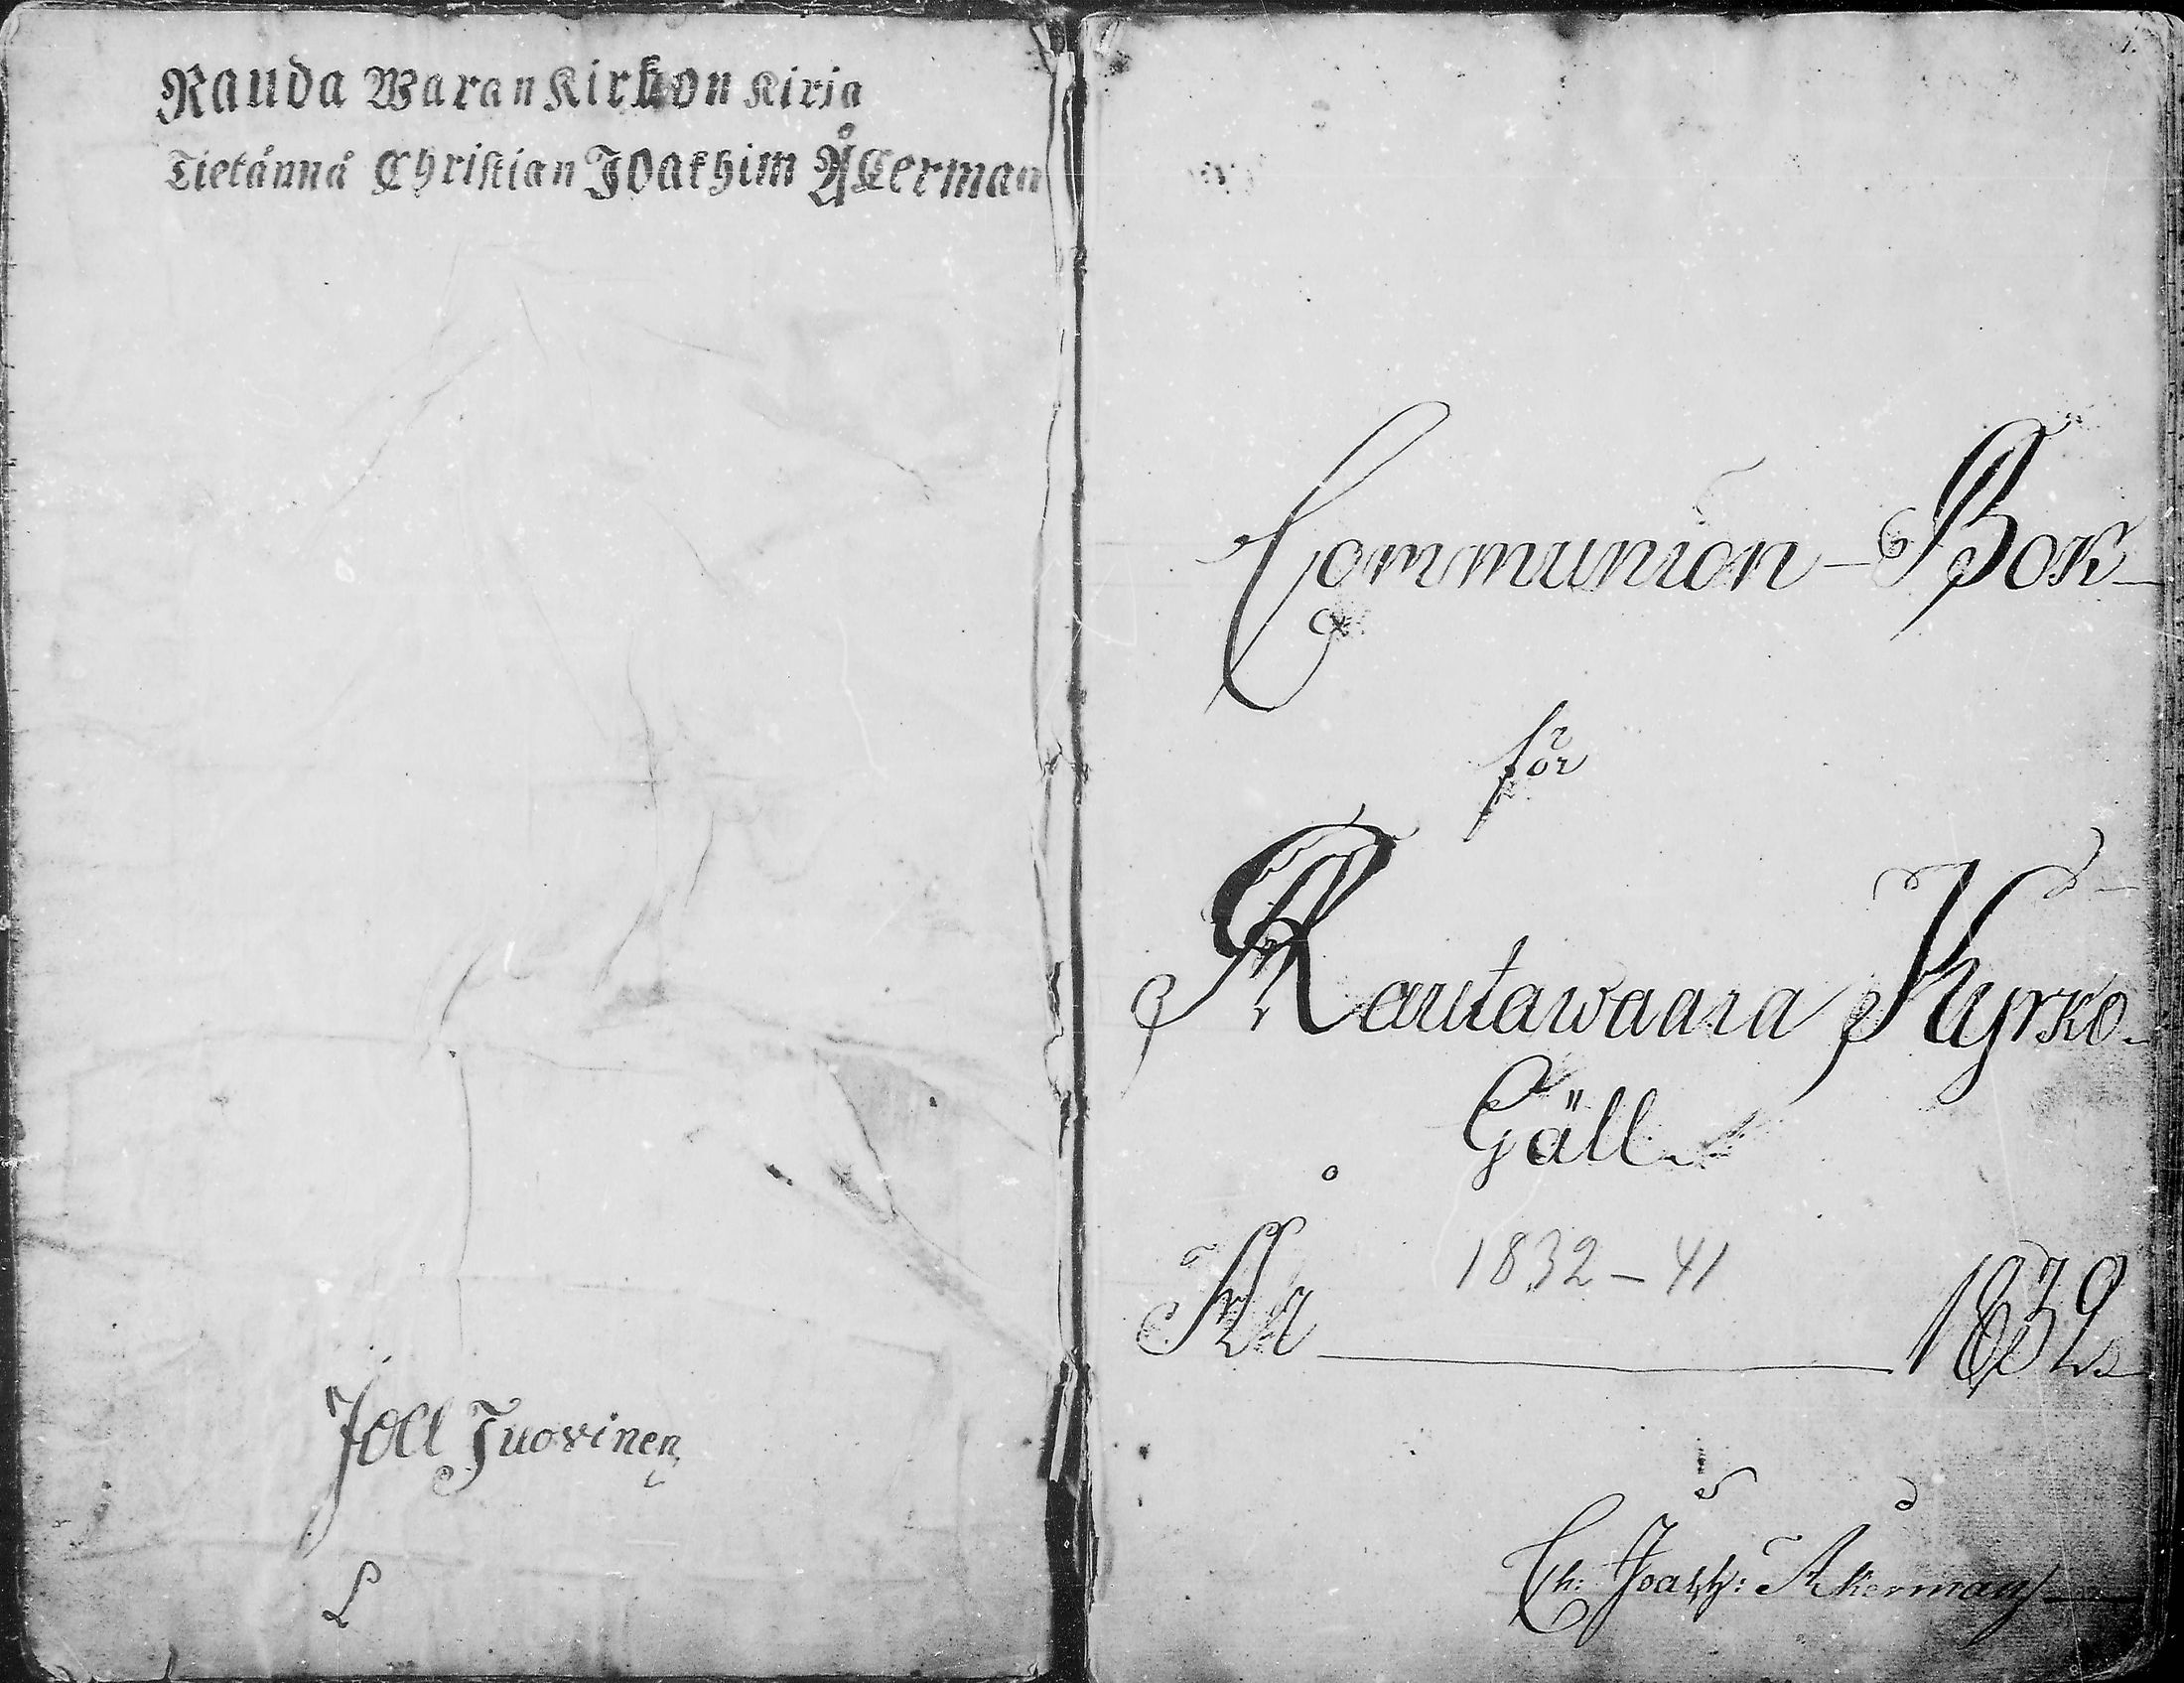 Rauda Waran Kirkon Kirja
Tietånnå Christian Joakhim Åkerman
Joel Juovinen
L
Communion-Bok
för
Rautawaara Kyrko-
Gäll
1832-41
År 1832
Ch: Joach: Åkerman